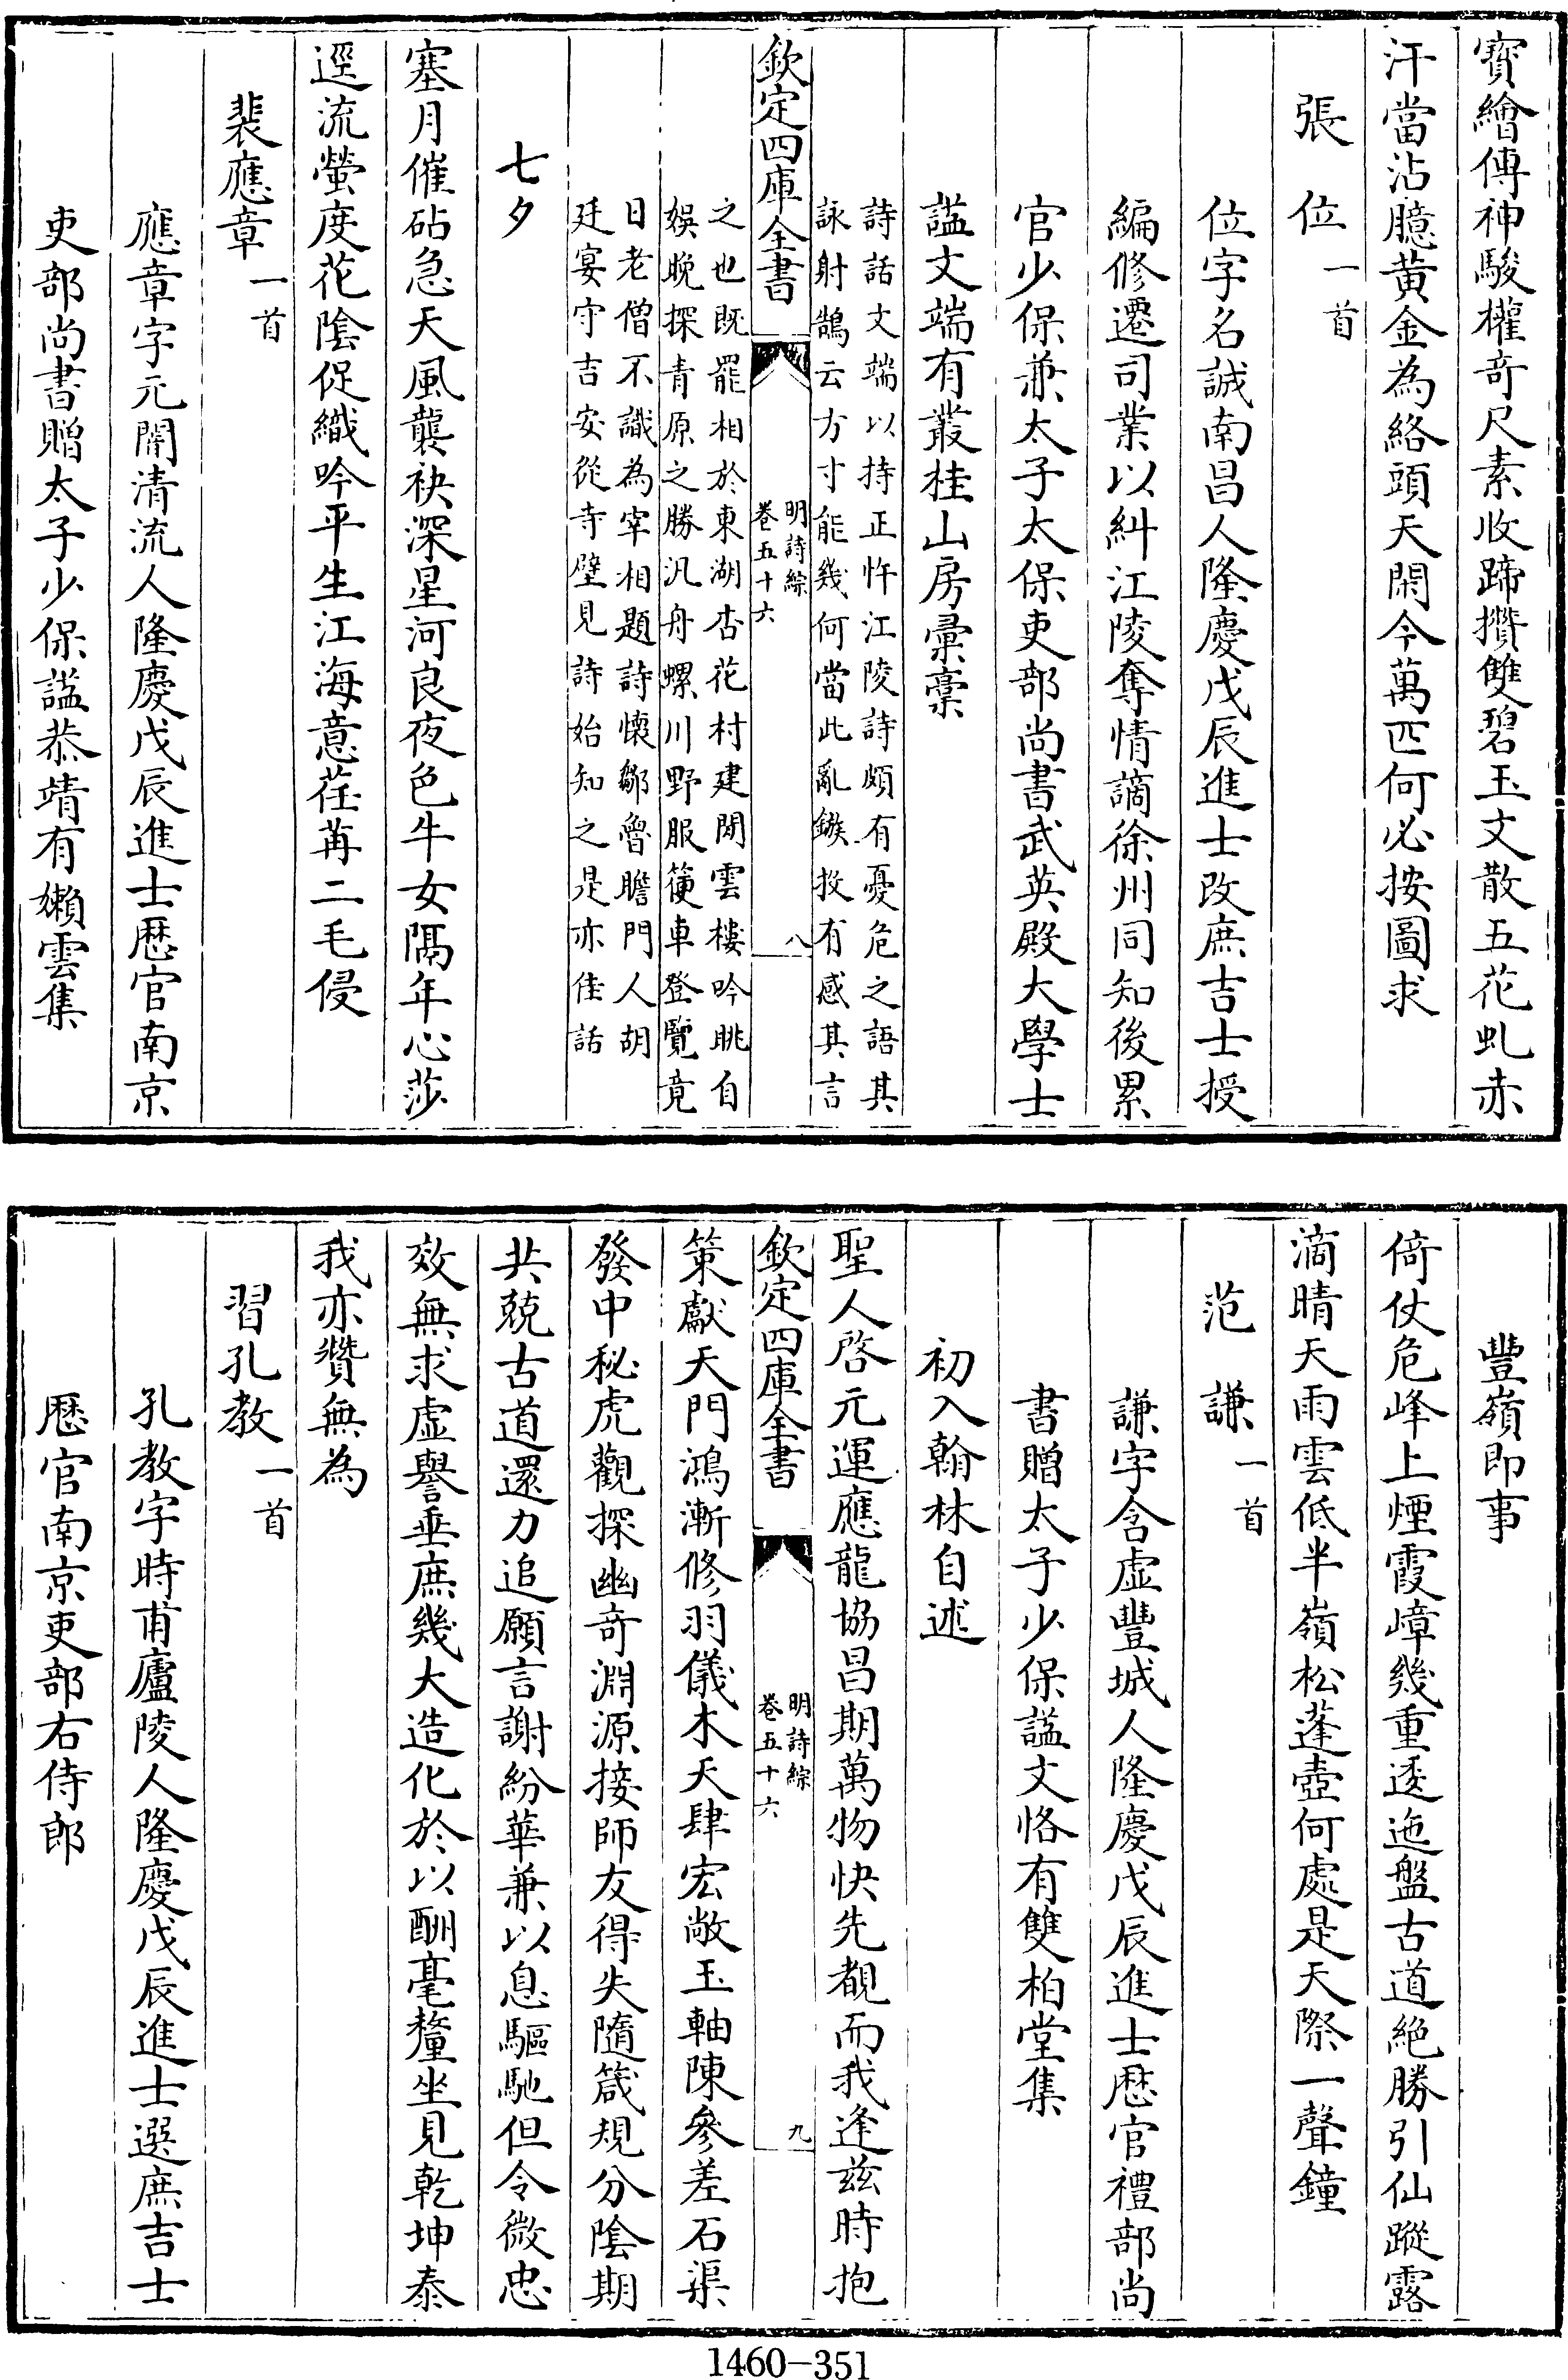 寳繪傳神駿權竒尺素收蹄攢雙碧玉文散五花虬赤
汗當沾臆黄金為絡頭天閑今萬匹何必按圖求
張位一首
位字名誠南昌人隆慶戊辰進士改庶吉士授
編修遷司業以糾江陵奪情謫徐州同知後累
官少保兼太子太保吏部尚書武英殿大學士
謚文端有叢桂山房彚稾
詩話文端以持正忤江陵詩頗有憂危之語其
詠射鵠云方寸能幾何當此亂鏃投有感其言
欽定四庫全書
明詩綜
卷五十六
八
之也既罷相於東湖杏花村建閒雲樓吟眺自
娯晚探青原之勝汎舟螺川野服箯車登覽竟
日老僧不識為宰相題詩懐鄒魯瞻門人胡
廷宴守吉安從寺壁見詩始知之是亦佳話
七夕
塞月催砧急天風襲袂深星河良夜色牛女隔年心莎
逕流螢度花隂促織吟平生江海意荏苒二毛侵
裴應章一首
應章字元闇清流人隆慶戊辰進士歴官南京
吏部尚書贈太子少保謚恭靖有嬾雲集
豐嶺即事
倚仗危峰上煙霞嶂幾重逶迤盤古道絶勝引仙蹤露
滴晴天雨雲低半嶺松蓬壺何處是天際一聲鐘
范謙一首
謙字含虚豐城人隆慶戊辰進士歴官禮部尚
書贈太子少保謚文恪有雙柏堂集
初入翰林自述
聖人啓元運應龍協昌期萬物快先覩而我逢兹時抱
欽定四庫全書
明詩綜
卷五十六
九
策獻天門鴻漸修羽儀木天肆宏敞玉軸陳參差石渠
發中秘虎觀探幽竒淵源接師友得失隨箴規分隂期
共兢古道還力追願言謝紛華兼以息驅馳但令微忠
效無求虚譽垂庶幾大造化於以酬毫釐坐見乾坤泰
我亦贊無為
習孔教一首
孔教字時甫廬陵人隆慶戊辰進士選庶吉士
歴官南京吏部右侍郎
1460-351